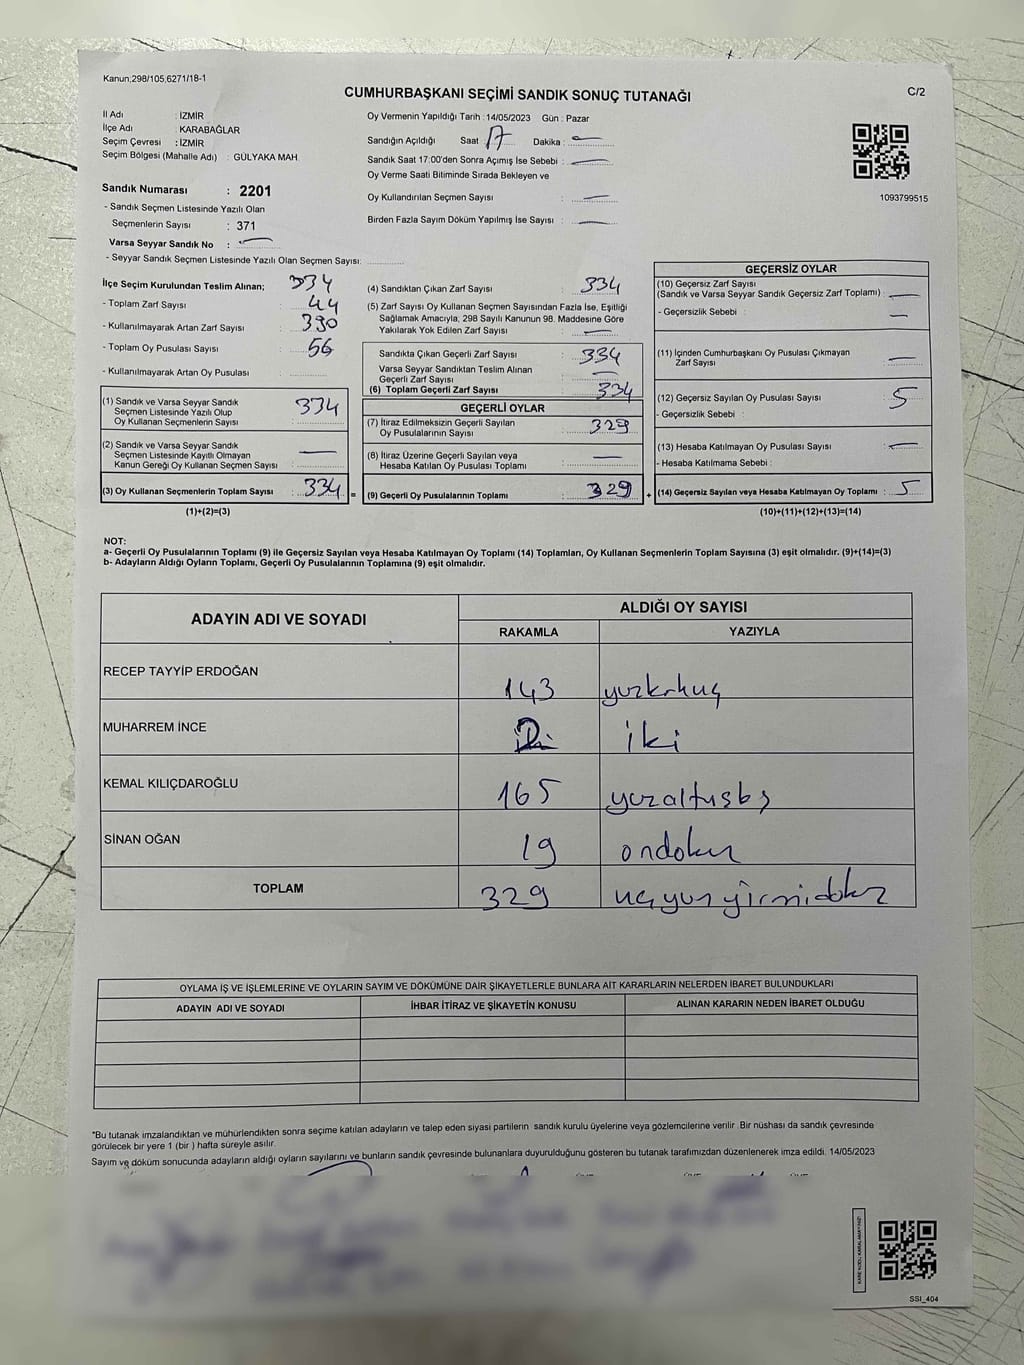 Kanun;298/105,6271/18-1
CUMHURBAŞKANI SEÇİMİ SANDIK SONUÇ TUTANAĞI
C/2
İl Adı : İZMİR
İlçe Adı : KARABAĞLAR
Seçim Çevresi : İZMİR
Seçim Bölgesi (Mahalle Adı) : GÜLYAKA MAH.
Sandık Numarası : 2201
- Sandık Seçmen Listesinde Yazılı Olan
Seçmenlerin Sayısı : 371
Varsa Seyyar Sandık No : —
- Seyyar Sandık Seçmen Listesinde Yazılı Olan Seçmen Sayısı:
Oy Vermenin Yapıldığı Tarih :14/05/2023 Gün : Pazar
Sandığın Açıldığı Saat 17 Dakika : —
Sandık Saat 17:00'den Sonra Açımış İse Sebebi : —
Oy Verme Saati Bitiminde Sırada Bekleyen ve
Oy Kullandırılan Seçmen Sayısı : —
Birden Fazla Sayım Döküm Yapılmış İse Sayısı : —
1093799515
İlçe Seçim Kurulundan Teslim Alınan; 334
- Toplam Zarf Sayısı : 44
- Kullanılmayarak Artan Zarf Sayısı : 390
- Toplam Oy Pusulası Sayısı : 56
- Kullanılmayarak Artan Oy Pusulası :
(1) Sandık ve Varsa Seyyar Sandık
Seçmen Listesinde Yazılı Olup
Oy Kullanan Seçmenlerin Sayısı : 334
(2) Sandık ve Varsa Seyyar Sandık
Seçmen Listesinde Kayıtlı Olmayan
Kanun Gereği Oy Kullanan Seçmen Sayısı : —
(3) Oy Kullanan Seçmenlerin Toplam Sayısı : 334 =
(1)+(2)=(3)
(4) Sandıktan Çıkan Zarf Sayısı : 334
(5) Zarf Sayısı Oy Kullanan Seçmen Sayısından Fazla İse, Eşitliği
Sağlamak Amacıyla; 298 Sayılı Kanunun 98. Maddesine Göre
Yakılarak Yok Edilen Zarf Sayısı : —
Sandıkta Çıkan Geçerli Zarf Sayısı : 334
Varsa Seyyar Sandıktan Teslim Alınan
Geçerli Zarf Sayısı : —
(6) Toplam Geçerli Zarf Sayısı : 334
GEÇERLİ OYLAR
(7) İtiraz Edilmeksizin Geçerli Sayılan
Oy Pusulalarının Sayısı : 329
(8) İtiraz Üzerine Geçerli Sayılan veya
Hesaba Katılan Oy Pusulası Toplamı : —
(9) Geçerli Oy Pusulalarının Toplamı : 329 +
GEÇERSİZ OYLAR
(10) Geçersiz Zarf Sayısı
(Sandık ve Varsa Seyyar Sandık Geçersiz Zarf Toplamı) : —
- Geçersizlik Sebebi : —
(11) İçinden Cumhurbaşkanı Oy Pusulası Çıkmayan
Zarf Sayısı : —
(12) Geçersiz Sayılan Oy Pusulası Sayısı : 5
- Geçersizlik Sebebi :
(13) Hesaba Katılmayan Oy Pusulası Sayısı : —
- Hesaba Katılmama Sebebi :
(14) Geçersiz Sayılan veya Hesaba Katılmayan Oy Toplamı : 5
(10)+(11)+(12)+(13)=(14)
NOT:
a- Geçerli Oy Pusulalarının Toplamı (9) ile Geçersiz Sayılan veya Hesaba Katılmayan Oy Toplamı (14) Toplamları, Oy Kullanan Seçmenlerin Toplam Sayısına (3) eşit olmalıdır. (9)+(14)=(3)
b- Adayların Aldığı Oyların Toplamı, Geçerli Oy Pusulalarının Toplamına (9) eşit olmalıdır.
ADAYIN ADI VE SOYADI
ALDIĞI OY SAYISI
RAKAMLA YAZIYLA
RECEP TAYYİP ERDOĞAN 143 yuzkrkuç
MUHARREM İNCE 2 iki
KEMAL KILIÇDAROĞLU 165 yuzaltmşbş
SİNAN OĞAN 19 ondokuz
TOPLAM 329 uçyuzyirmidokuz
OYLAMA İŞ VE İŞLEMLERİNE VE OYLARIN SAYIM VE DÖKÜMÜNE DAİR ŞİKAYETLERLE BUNLARA AİT KARARLARIN NELERDEN İBARET BULUNDUKLARI
ADAYIN ADI VE SOYADI İHBAR İTİRAZ VE ŞİKAYETİN KONUSU ALINAN KARARIN NEDEN İBARET OLDUĞU
*Bu tutanak imzalandıktan ve mühürlendikten sonra seçime katılan adayların ve talep eden siyasi partilerin sandık kurulu üyelerine veya gözlemcilerine verilir .Bir nüshası da sandık çevresinde
görülecek bir yere 1 (bir ) hafta süreyle asılır.
Sayım ve döküm sonucunda adayların aldığı oyların sayılarını ve bunların sandık çevresinde bulunanlara duyurulduğunu gösteren bu tutanak tarafımızdan düzenlenerek imza edildi. 14/05/2023
KARE KODU KARALAMAYINIZ!
SSI_404